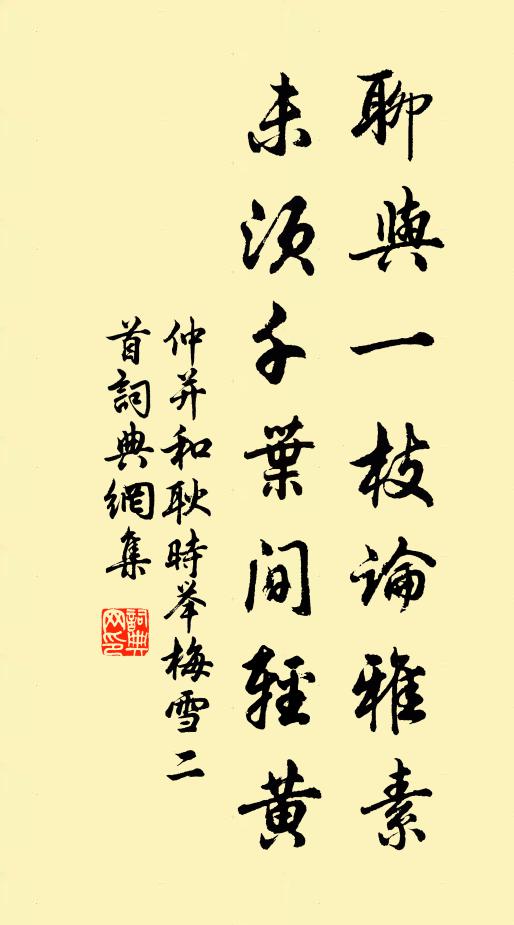 聊與一枝論雅素
未須千葉間輕黄
仲并和耿時举梅雪二
首詞典網集
詞典
网印